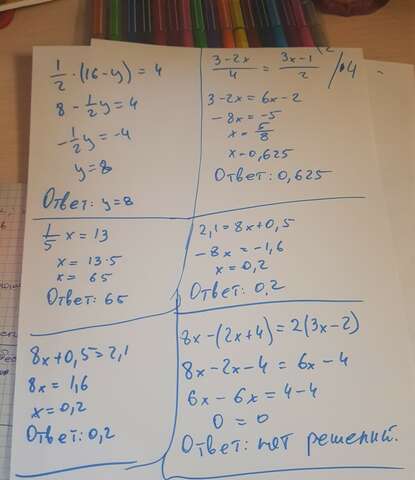 1/2 · (16-y) = 4
8 - 1/2y = 4
-1/2y = -4
y = 8
Ответ: y = 8
3-2x/4 = 3x-1/2 /·4
3-2x = 6x-2
-8x = -5
x = 5/8
x = 0,625
Ответ: 0,625
1/5 x = 13
x = 13·5
x = 65
Ответ: 65
2,1 = 8x+0,5
-8x = -1,6
x = 0,2
Ответ: 0,2
8x+0,5 = 2,1
8x = 1,6
x = 0,2
Ответ: 0,2
8x-(2x+4) = 2(3x-2)
8x-2x-4 = 6x-4
6x-6x = 4-4
0 = 0
Ответ: нет решений.